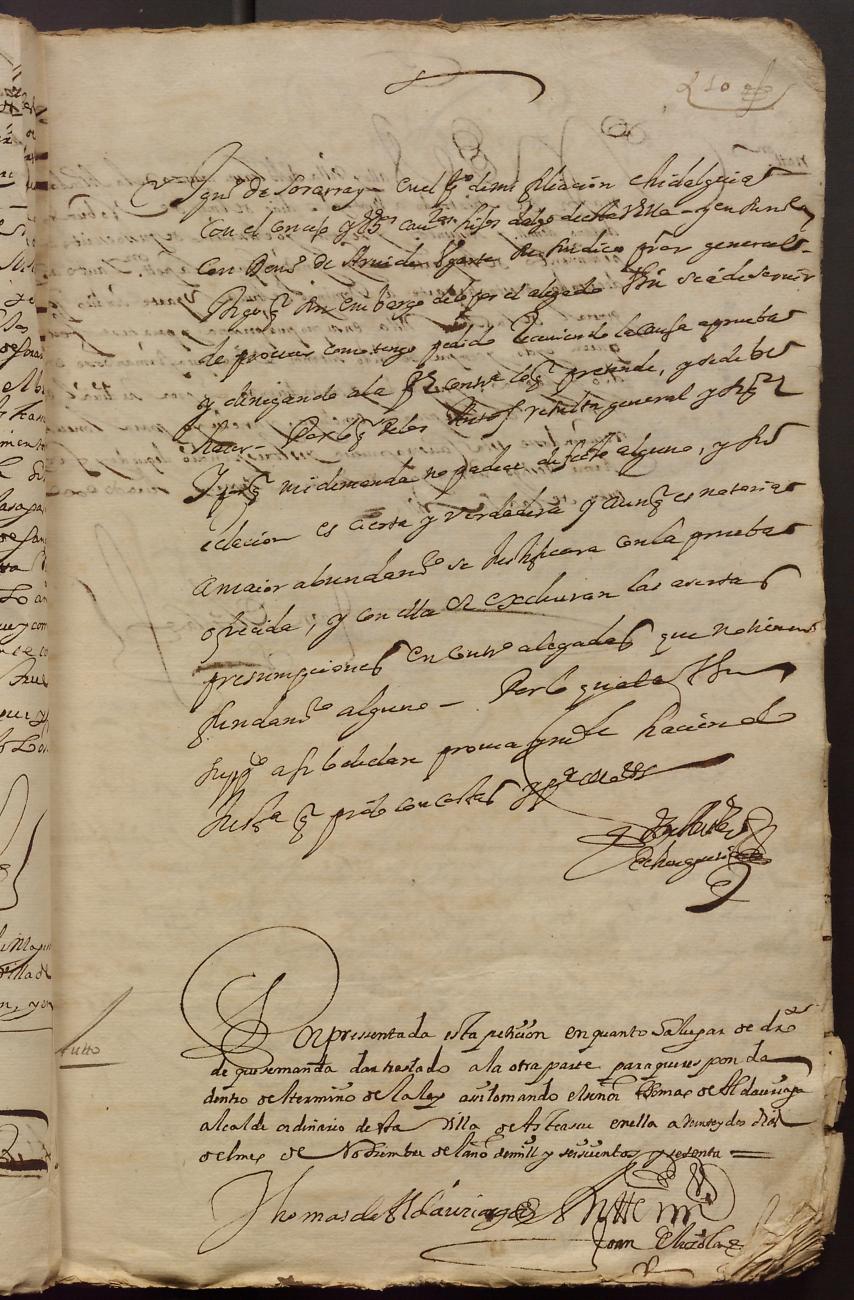 210
Ign.o de Sorarray en el p.o de mi filiacion e hidalguia
con el concejo y cau.os hijos dalgo de esta Villa y en su n.e
con Dom.o de su sindico p.or general
Digo q. sin embargo de lo por el alegado Vm se á de servir
de proveer como tengo pedido reciviendo la causa a prueba
y denegando a la p.te contr.a lo q. pretende, y se debe
hacer Por lo q. de los Autos resulta general y sig.te
Y porq. mi demanda no padece defecto alguno, y su
relacion es cierta y verdadera y aunq. es notoria
a maior abundam.to se justificara con la prueba
ofrecida, y con ella se excluiran las asertas
presumpciones en contr.o alegadas que no tienen
fundam.to alguno — Por lo qual a Vm
supp.co asi lo declare provea y m.de haciendo
Just.a q. pido con costas y p.a ello etc
Echagaray
Autto
Por presentada esta peticion en quanto a lugar de dro
de que se manda dar traslado a la otra parte para que responda
dentro del termino de la ley asi lo mando el señor Thomas de Aldauriaga
alcalde ordinario de esta Villa de Asteasu en ella a veinte y dos dias
del mes de Nobiembre del año de mill y seiscientos y sesenta
Thomas de Aldauriaga Antte mi
Joan